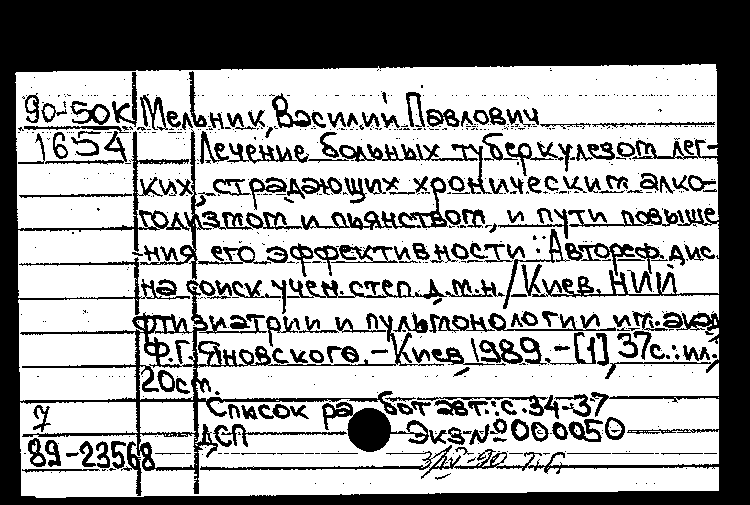 90-50К Мельник, Василий Павлович
1654 Лечение больных туберкулезом лег-
ких, страдающих хроническим алко-
голизмом и пьянством, и пути повыше
-ния его эффективности : Автореф. дис.
на соиск. учен. степ. д.м.н. / Киев. НИИ
фтизиатрии и пульмонологии им. акад
Ф.Г. Яновского. - Киев, 1989. - [1], 37 с. : ил.;
20 см.
7 Список работ авт.: с. 34-37
ДСП Экз № 000050
89-23568